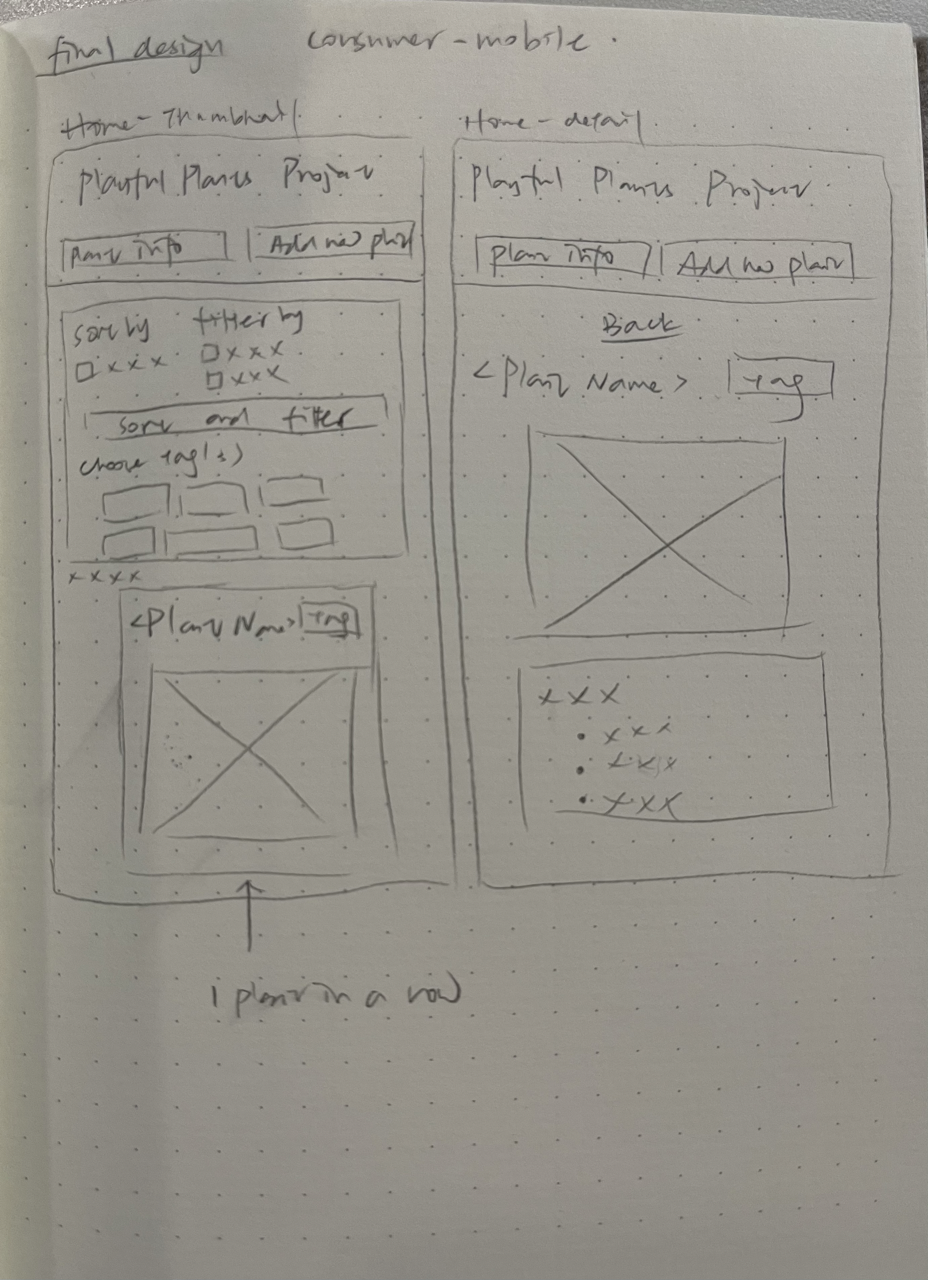 final design consumer-mobile.
Home-Thumbnail
Playful Plants Project
Plant info Add new plant
sort by filter by
xxx xxx
xxx
sort and filter
choose tag(s)
xxxx
<Plant Name> tag
1 plant in a row
Home-detail
Playful Plants Project
Plant info Add new plant
Back
<Plant Name> tag
xxx
• xxx
• xxx
• xxx